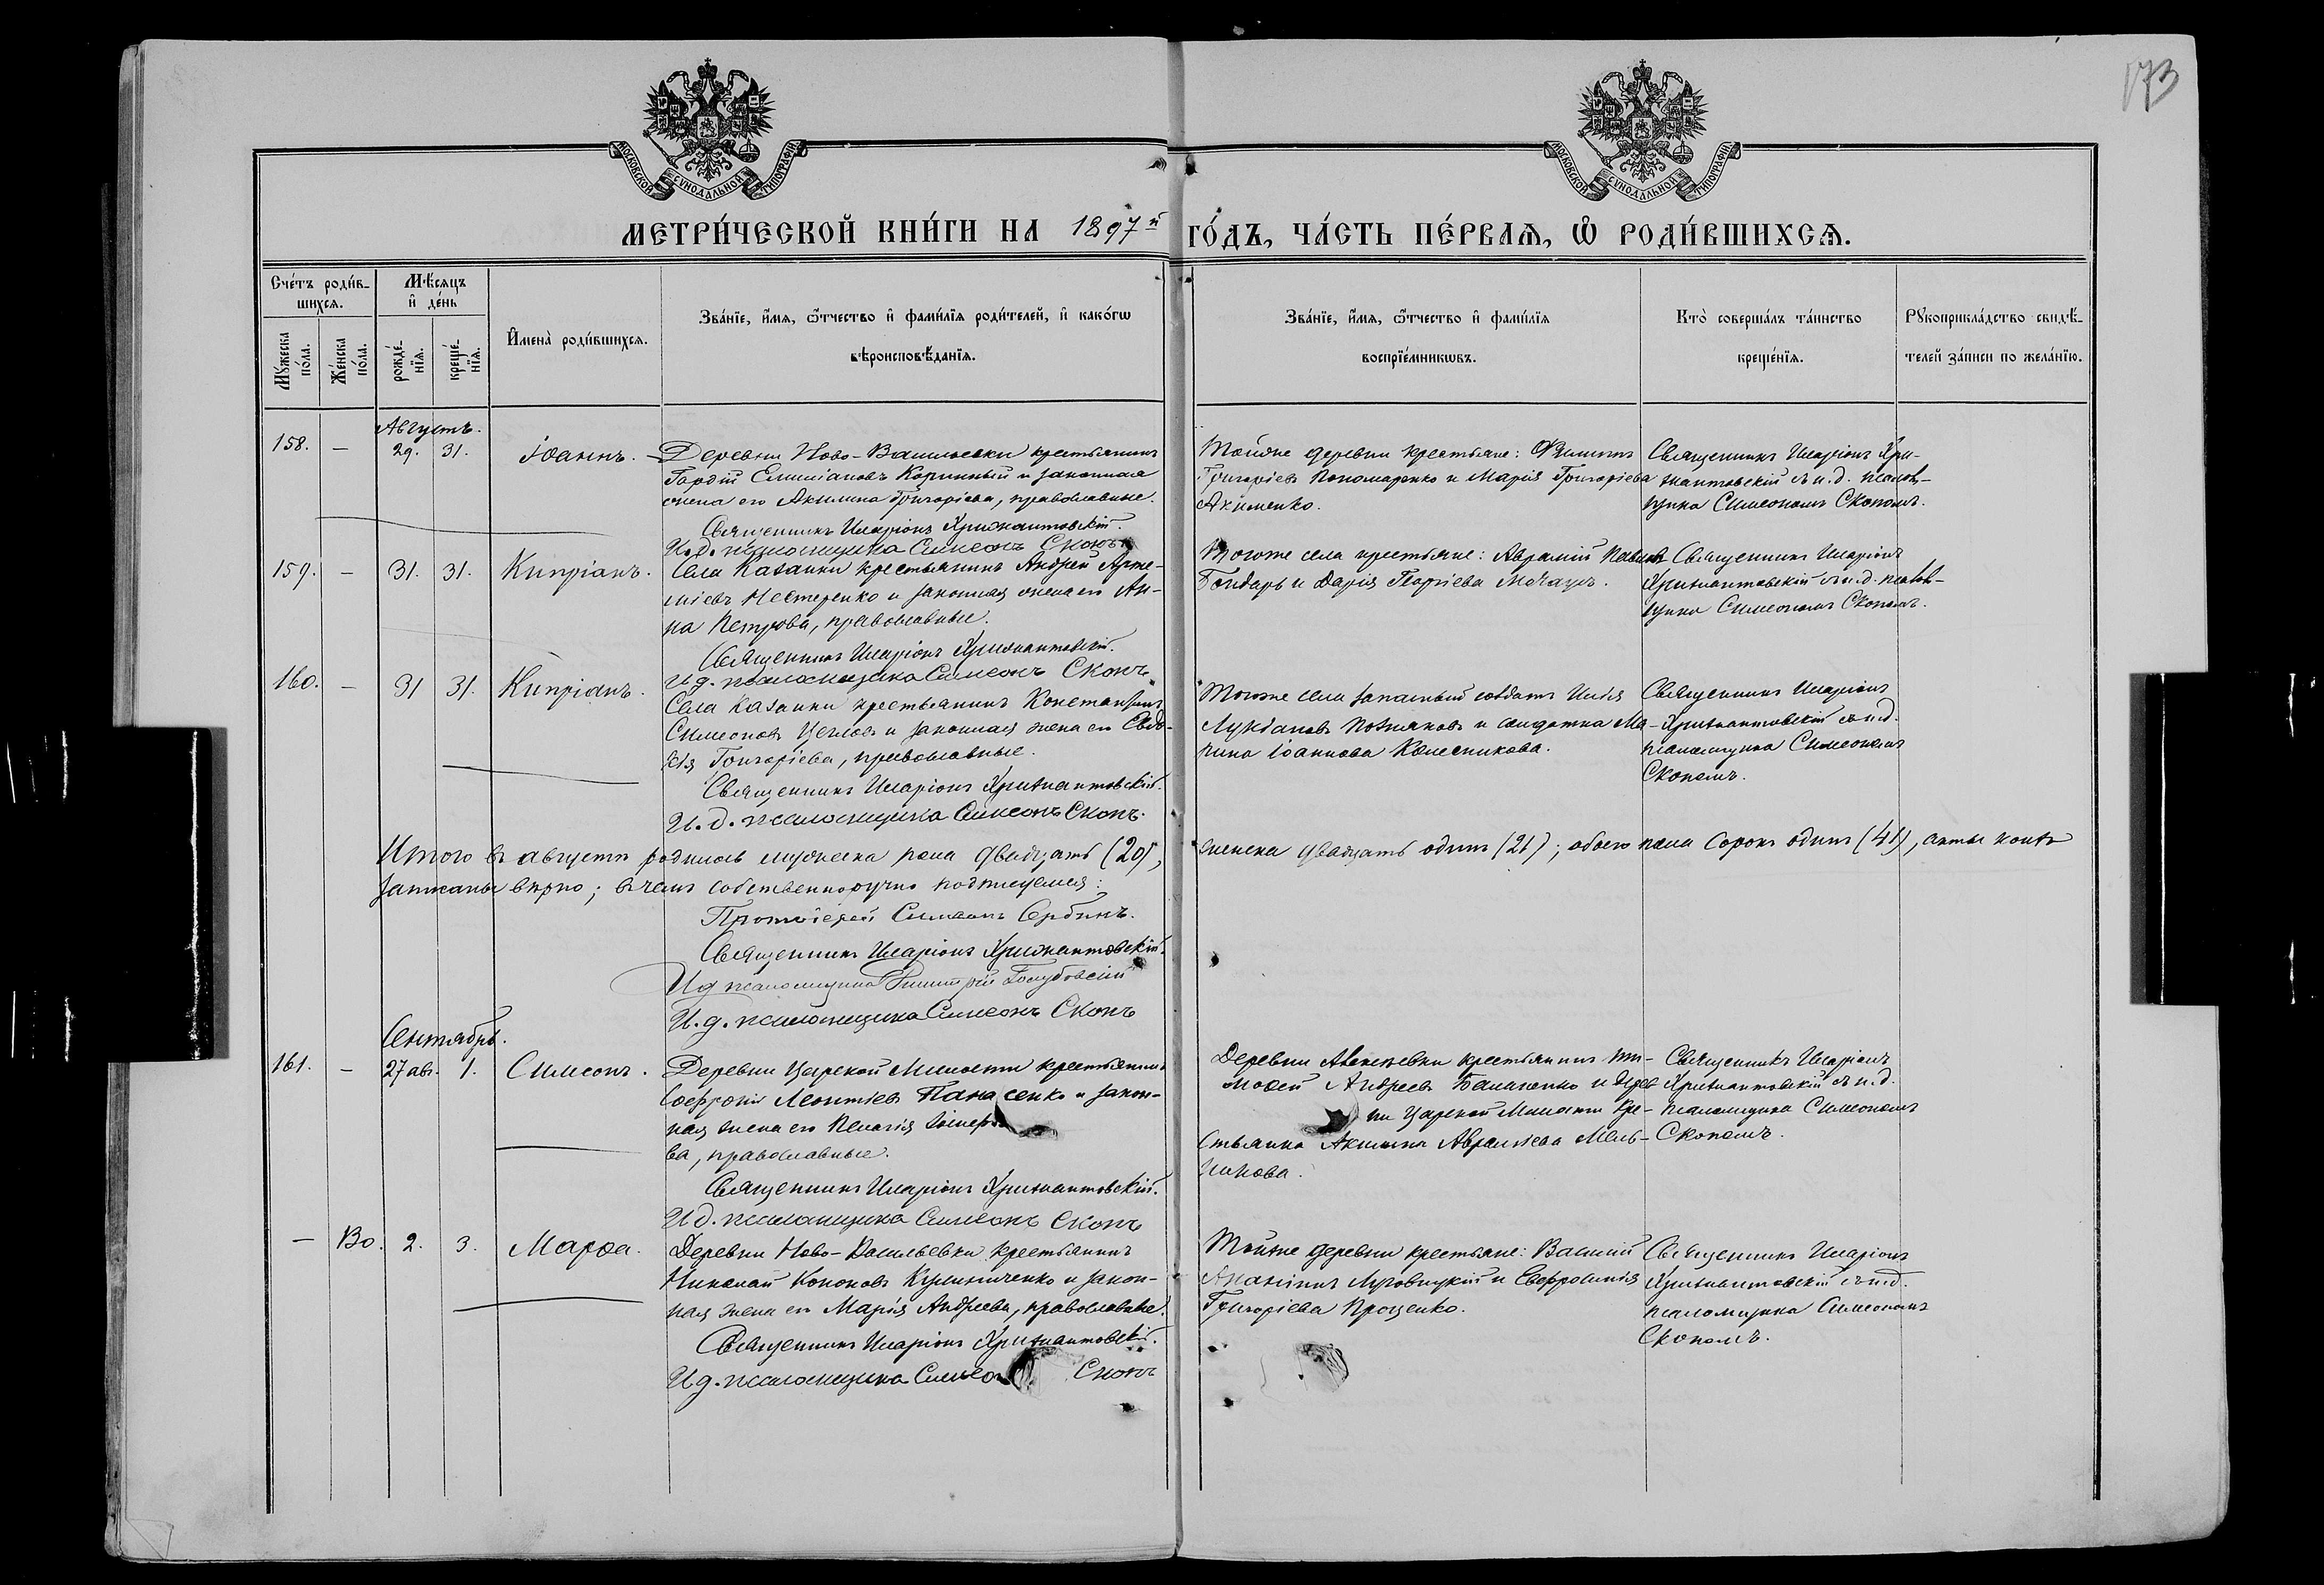 173
МОСКОВСКОЙ СѴНОДАЛЬНОЙ ТИПОГРАФІИ
МОСКОВСКОЙ СѴНОДАЛЬНОЙ ТИПОГРАФІИ
МЕТРИ́ЧЕСКОЙ КНИ́ГИ НА 1897й ГО́ДЪ, ЧА́СТЬ ПЕ́РВАѦ, Ѡ҆ РОДИ́ВШИХСѦ.
Сче́тъ роди́в-
шихсѧ.
Мꙋ́жеска по́ла.
Же́нска по́ла.
Мѣ́сѧцъ
и҆ де́нь
рожде́-нїѧ.
креще́-нїѧ.
И҆мена̀ роди́вшихсѧ.
Зва́нїе, и҆́мѧ, ѻ҆́тчество и҆ фами́лїѧ роди́телей, и҆ како́гѡ
вѣроисповѣ́данїѧ.
Зва́нїе, и҆́мѧ, ѻ҆́тчество и҆ фами́лїѧ
воспрїе́мникѡвъ.
Кто̀ соверша́лъ та́инство
креще́нїѧ.
Рꙋкоприкла́дство свидѣ́-
телей за́писи по жела́нїю.
Августъ.
158. — 29. 31. Іоаннъ.
Деревни Ново-Васильевки крестьянинъ
Гордій Емиліановъ Коринный и законная
жена его Акилина Григоріева, православные.
Священникъ Иларіонъ Хрисантовскій.
И.д. псаломщика Симеонъ Скопъ
Тойже деревни крестьяне: Филиппъ
Григоріевъ Пономаренко и Марія Григоріева
Акименко.
Священникъ Иларіонъ Хри-
сантовскій съ и.д. псалом-
щика Симеономъ Скопомъ.
159. — 31. 31. Кипріанъ.
Села Казанки крестьянинъ Андрей Арте-
міевъ Нестеренко и законная жена его Ан-
на Петрова, православные.
Священникъ Иларіонъ Хрисантовскій.
И д. псаломщика Симеонъ Скопъ
Тогоже села крестьяне: Аврамій Павловъ
Бондарь и Дарія Георгіева
Священникъ Иларіонъ
Хрисантовскій съ и.д. псалом-
щика Симеономъ Скопомъ.
160. — 31 31. Кипріанъ.
Села Казанки крестьянинъ Константинъ
Симеоновъ и законная жена его Евдо-
кія Григоріева, православные.
Священникъ Иларіонъ Хрисантовскій.
И.д. псаломщика Симеонъ Скопъ.
Тогоже села запасный солдатъ Илія
Лукіановъ Позняковъ и солдатка Ма-
рина Іоаннова Колесникова.
Священникъ Иларіонъ
Хрисантовскій съ и.д.
псаломщика Симеономъ
Скопомъ.
Итого въ августѣ родилось мужеска пола двадцать (20), женска двадцать одинъ (21); обоего пола сорокъ одинъ (41), акты коихъ
записаны вѣрно; въ чемъ собственноручно подписуемся:
Протоіерей Симеонъ Сербинъ.
Священникъ Иларіонъ Хрисантовскій.
И д псаломщика Димитрій Голубовскій
И.д. псаломщика Симеонъ Скопъ
Сентябрь.
161. — 27 авг. 1. Симеонъ.
Деревни Царской Милости крестьянинъ
Софроній Леонтіевъ Панасенко и закон-
ная жена его Пелагія
ва, православные.
Священникъ Иларіонъ Хрисантовскій.
И д. псаломщика Симеонъ Скопъ
Деревни Алексѣевки крестьянинъ Ти-
моѳей Андреевъ и дерев-
ни Царской Милости кре-
стьянка Акилина Авраміева Мель-
никова.
Священникъ Иларіонъ
Хрисантовскій съ и.д.
псаломщика Симеономъ
Скопомъ.
— 130. 2. 3. Марѳа.
Деревни Ново-Васильевки крестьянинъ
Николай Кононовъ Кулиниченко и закон-
ная жена его Марія Андреева, православные.
Священникъ Иларіонъ Хрисантовскій.
И д. псаломщика Симео Скопъ
Тойже деревни крестьяне: Василій
Ананіинъ Луговицкій и Евфросинія
Григоріева Проценко.
Священникъ Иларіонъ
Хрисантовскій съ и.д.
псаломщика Симеономъ
Скопомъ.